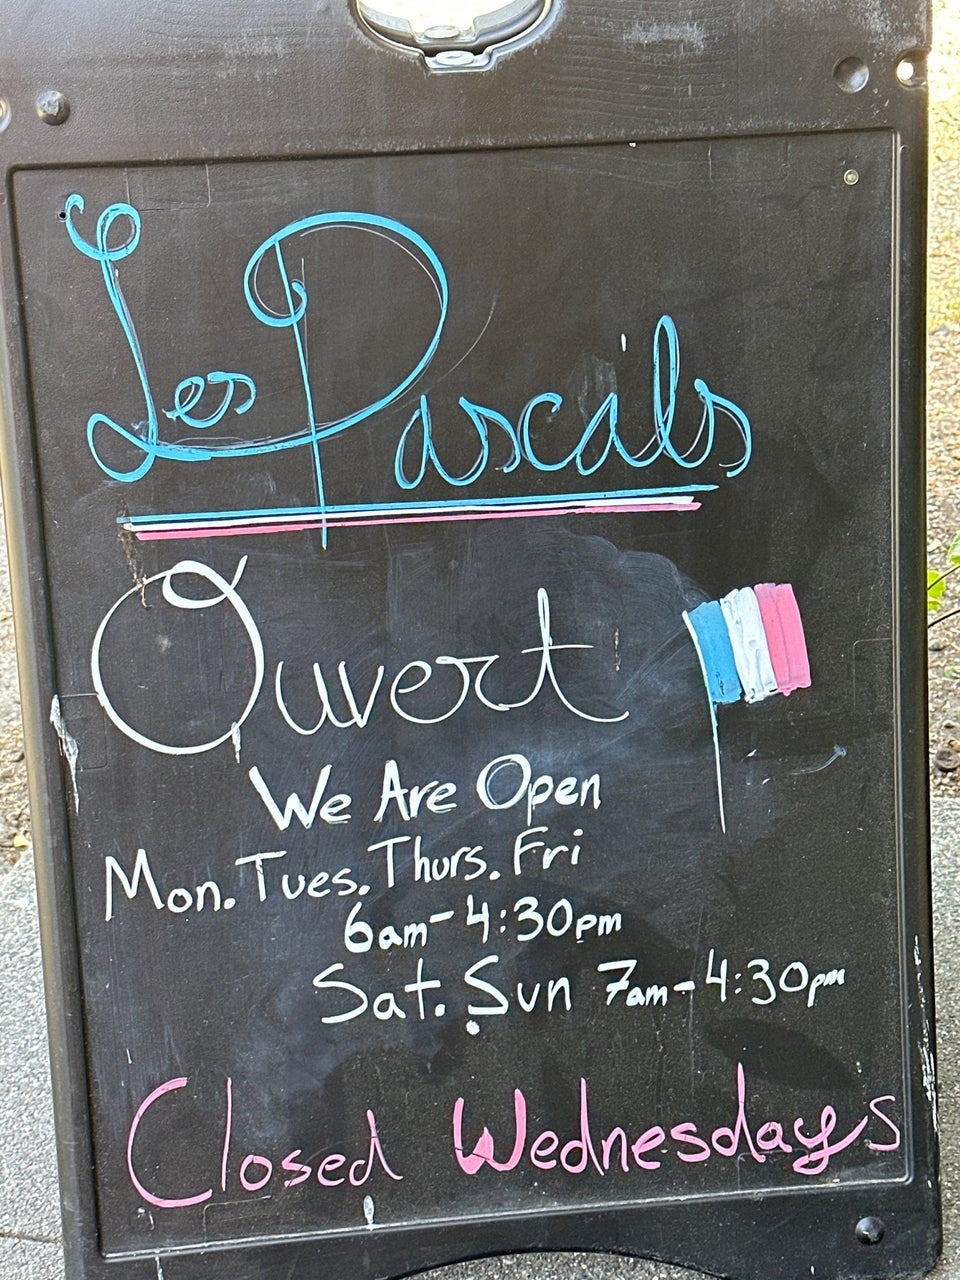 Les Pascals
Ouvert
We Are Open
Mon. Tues. Thurs. Fri
6am-4:30pm
Sat. Sun 7am-4:30pm
Closed Wednesdays